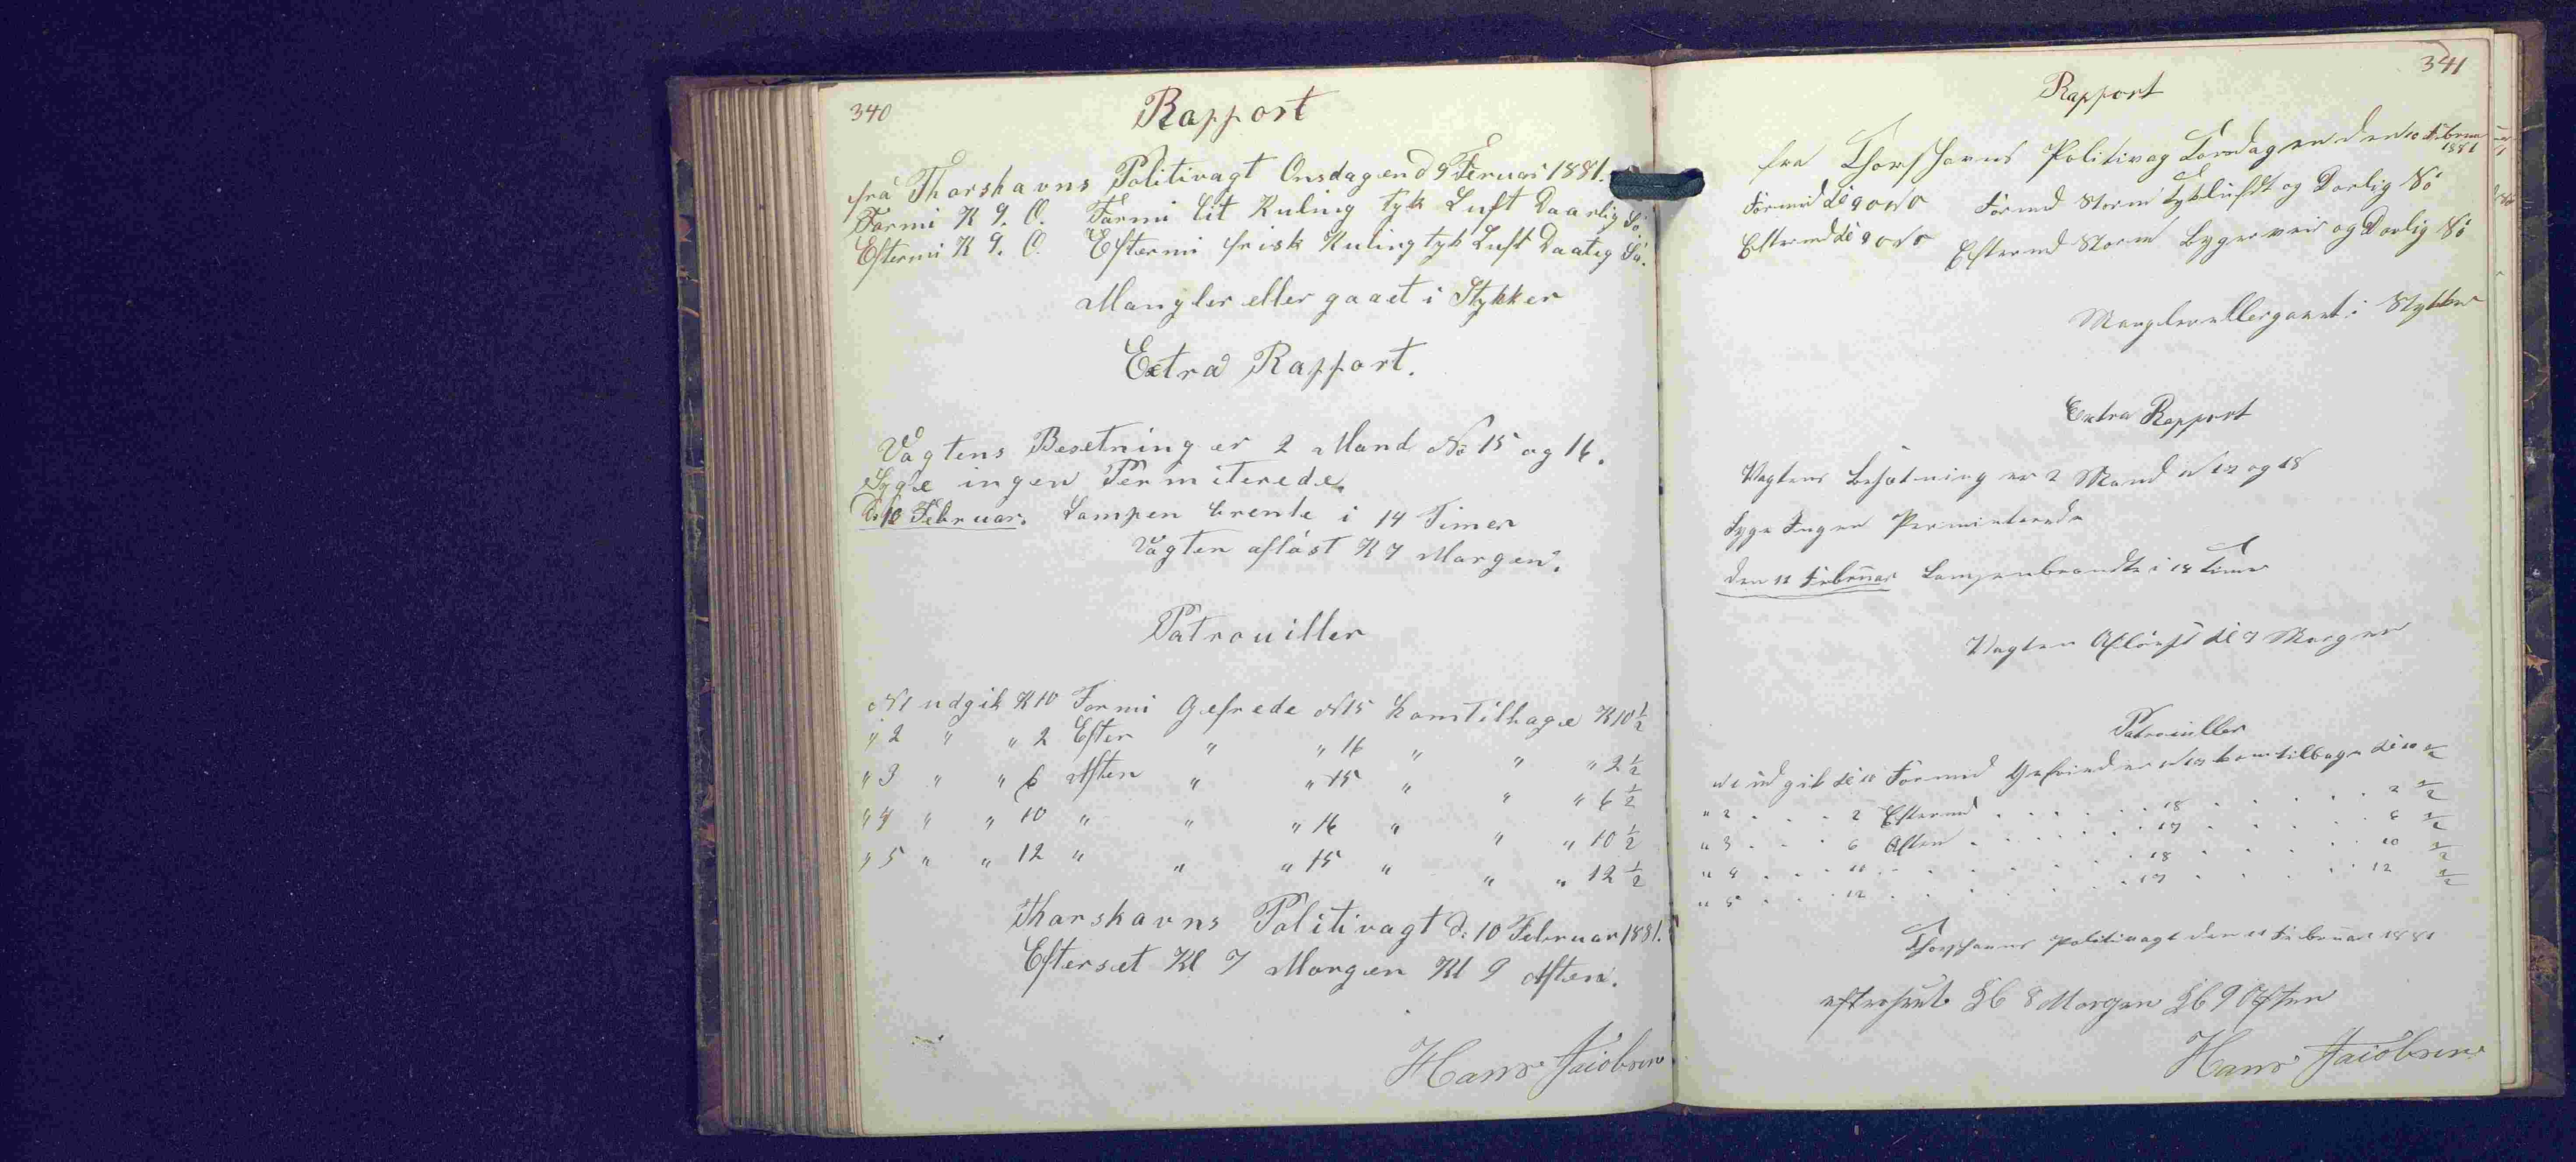 340
Rapport
frá Thorshavns Politivagt Onsdagen d 9 Feruar 1881.
Formi K 9. O. Formi lit Kuling tyk Luft Daarlig Sö.
Eftermi K 9. O. Eftermi frisk Kuling tyk Luft Daalig Sö.
Mangler eller gaaet i Stykker
Extra Rapport.
Vagtens Besetning er 2 Mand No 15 og 16.
Syge ingen Permiterede.
D. 10 Februar. Lampen brente i 14 Timer
Vagten aflöst K 7 Morgen.
Patrouiller
N 1 udgik K 10 Formi Gefrede N 15 kom Tilbage K 10 1/2
" 2 " " 2 Efter " " 16 " " " 2 1/2
" 3 " " 6 Aften " " 15 " " " 6 1/2
" 4 " " 10 " " " 16 " " " 10 1/2
" 5 " " 12 " " " 15 " " " 12 1/2
Thorshavns Politivagt d. 10 Februar 1881.
Efterset Kl 7 Morgen Kl 9 Aften.
Hans Jacobsen
341
Rapport
fra Thorshavns Politivag Torsdagen den 10 Februar 1881
Formd Kl 9 Formd Storm Tykluft og Dorlig Sö
Eftermd Kl 9 Eftermd Storm Bygerveir og Dorlig Sö
Mangler eller gaaet i Stykker
Extra Rapport
Vagtens Besætning er 2 Mand N 17 og 18
Syge Ingen Perminterede
den 11 Februar Lampen brandte i 14 Timer
Vagten Aflöest Kl 7 Morgen
Patrouiller
N 1 udgik Kl 10 Formd N 17 kom tilbage Kl 10 1/2
" 2 . . . 2 Eftermd . . . . . 18 . . . . . 2 1/2
" 3 . . . 6 Aften . . . . . 17 . . . . . 6 1/2
" 4 . . . 10 . . . . . . 18 . . . . . 10 1/2
" 5 . . . 12 . . . . . . 17 . . . . . 12 1/2
Thorshavns Politivagt den 11 Februar 1881
efterseet Kl 8 Morgen Kl 9 Aften
Hans Jacobsen